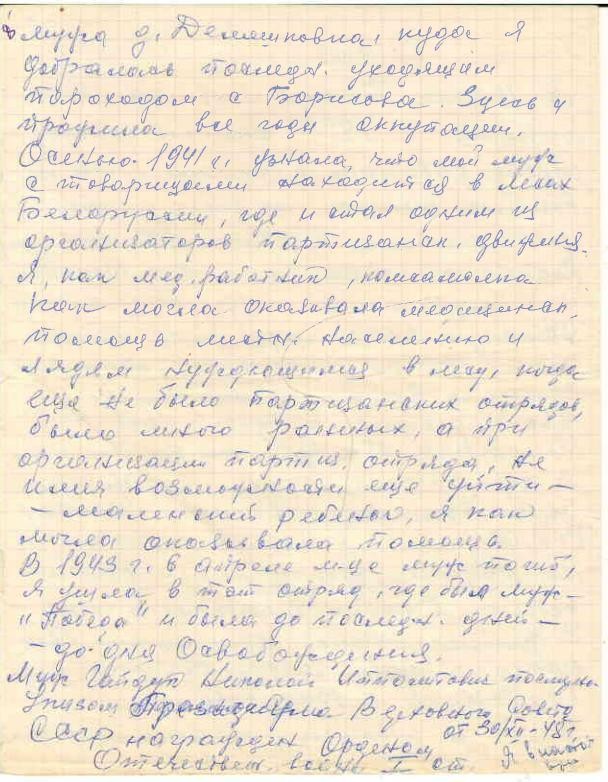 мужа д. Демешковка, куда я
добралась последн. уходящим
пароходом с Борисова. Здесь и
прожила все годы оккупации.
Осенью 1941 г. узнала, что мой муж
с товарищами находится в лесах
Белоруссии, где и стал одним из
организаторов партизанск. движения.
Я, как мед. работник, комсомолка
как могла оказывала медицинск.
помощь местн. населению и
людям нуждающимся в лесу, когда
еще не было партизанских отрядов,
было много раненых, а при
организации партиз. отряда, не
имея возможности еще уйти -
- маленький ребенок, я как
могла оказывала помощь.
В 1943 г. в апреле м-це муж погиб,
я ушла в тот отряд, где был муж -
"Победа" и была до последн. дней -
- до дня Освобождения.
Муж Николай Ипполитович посмертно
Указом Президиума Верховного Совета
СССР награжден Орденом от 30/XII-48 г.
Отечествен. войны I ст. Я